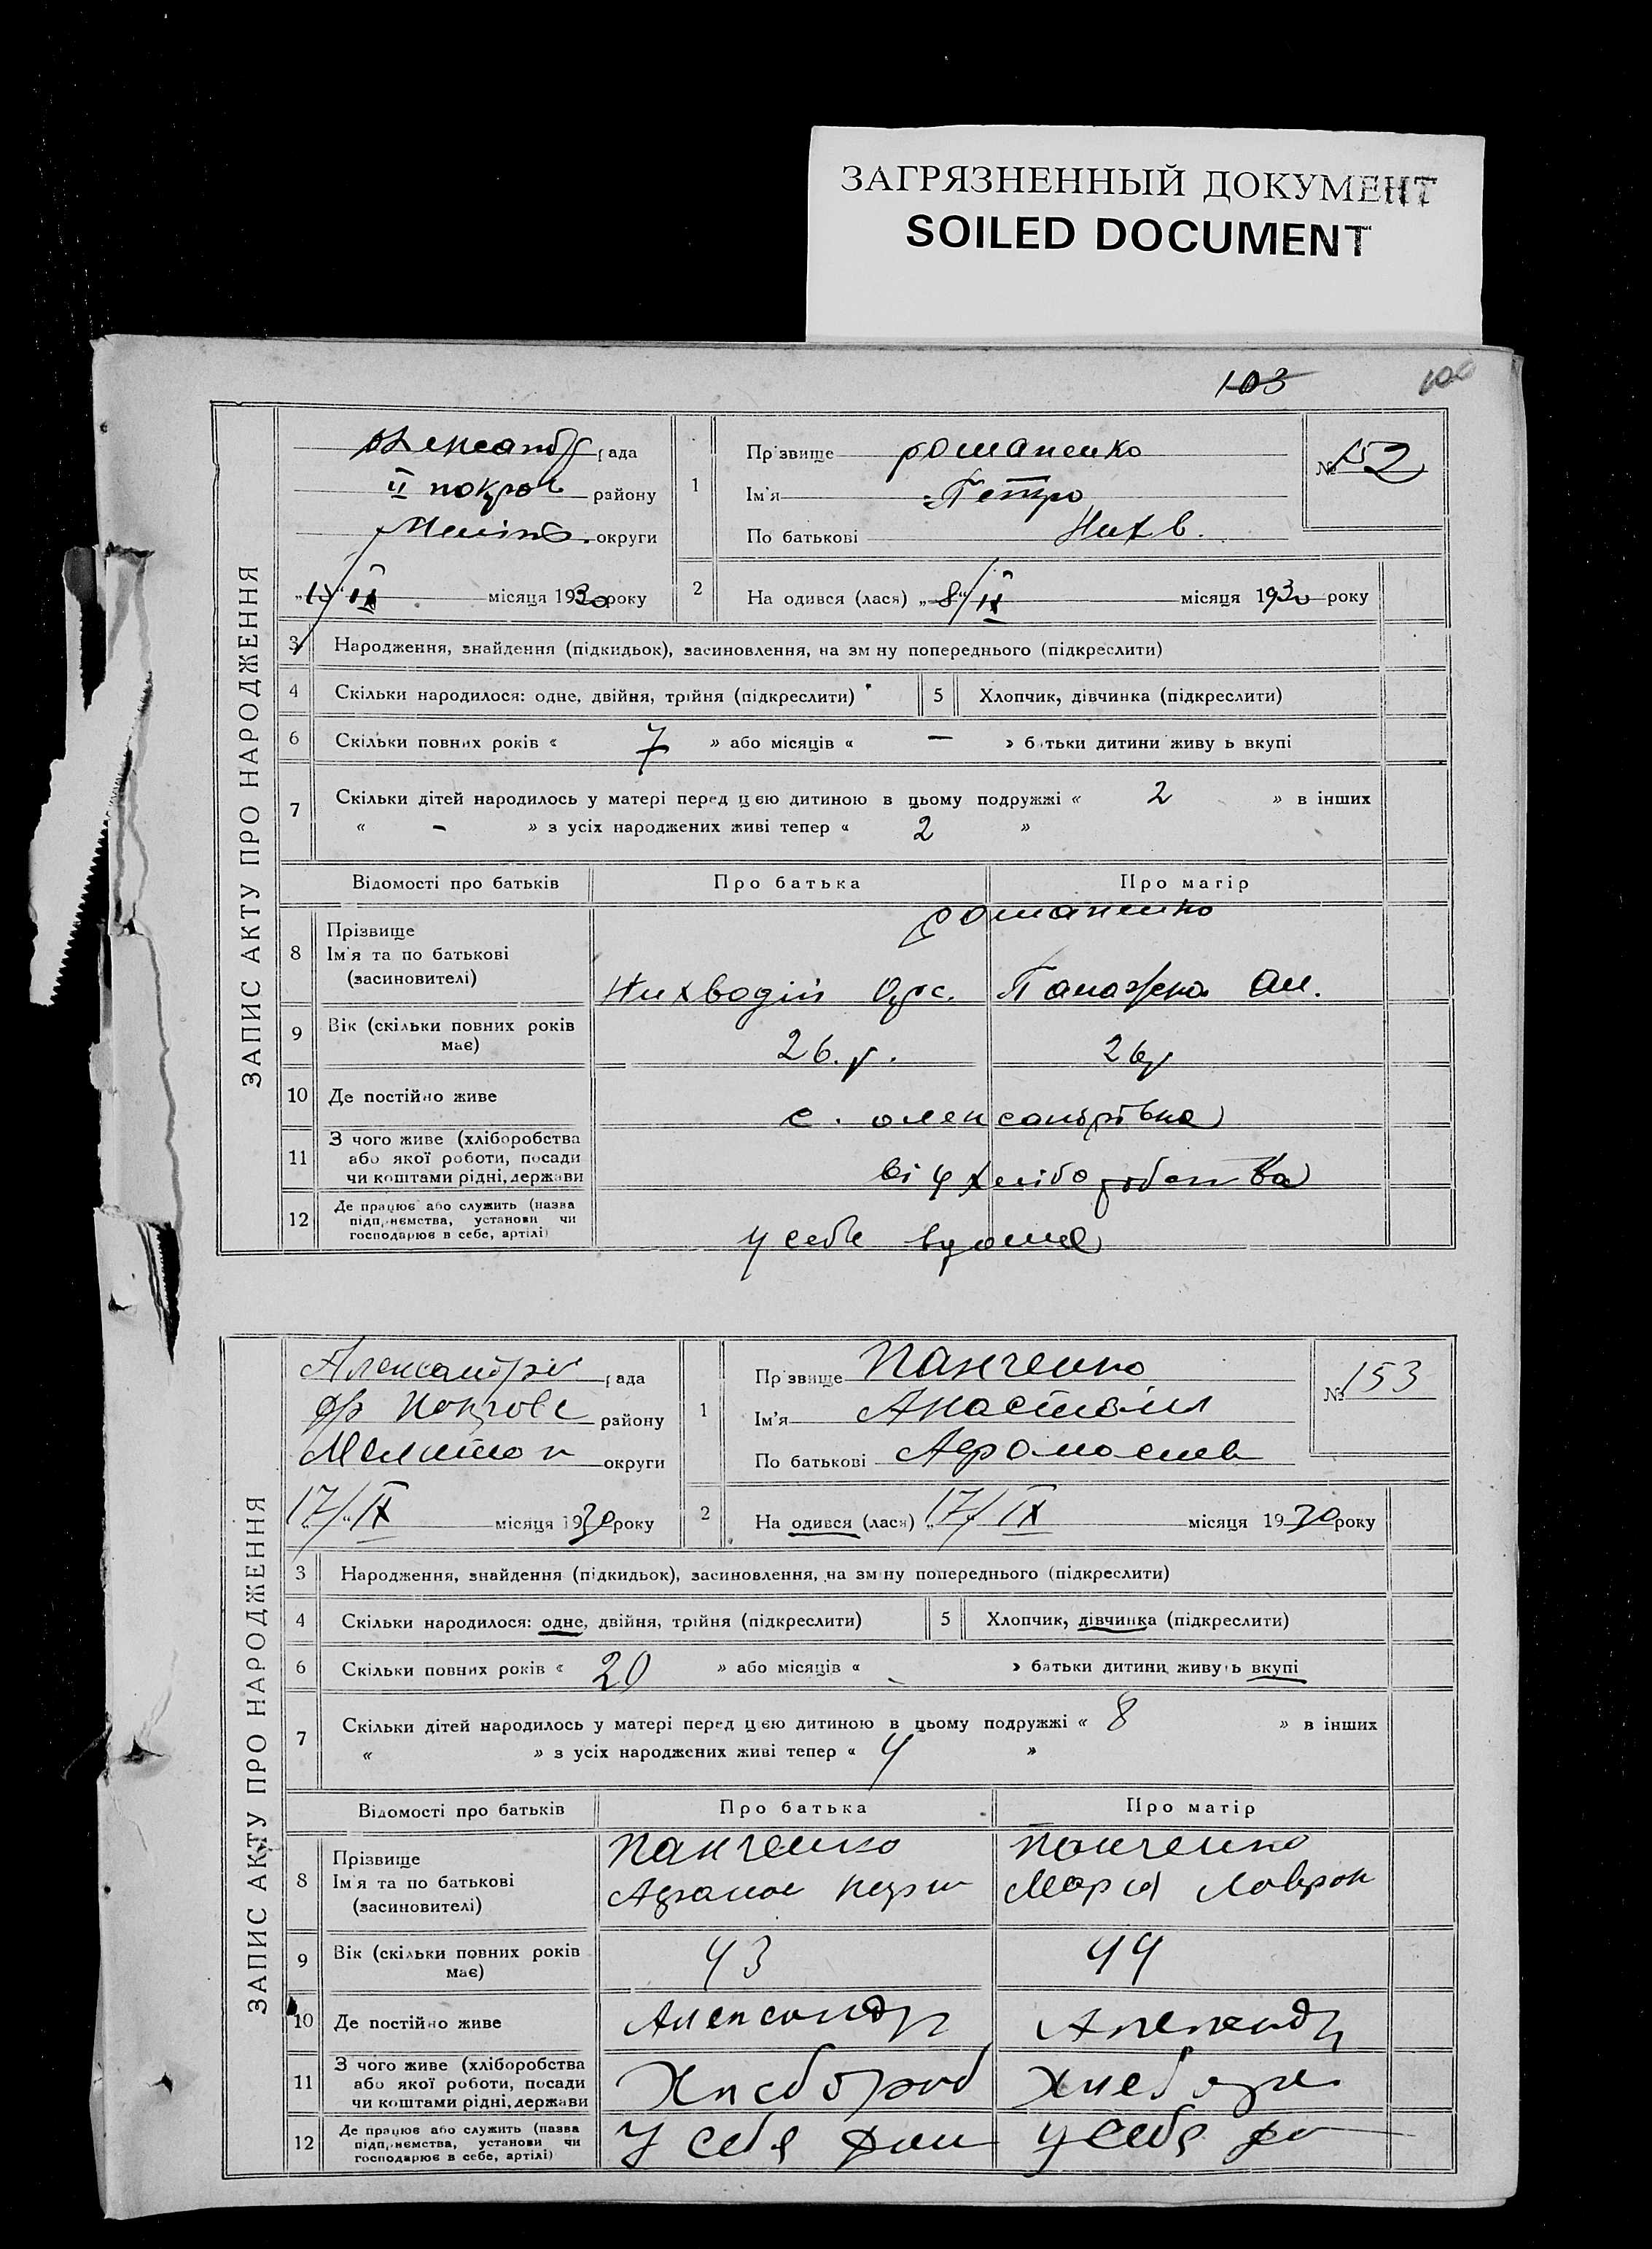 ЗАГРЯЗНЕННЫЙ ДОКУМЕНТ
SOILED DOCUMENT
103
100
ЗАПИС АКТУ ПРО НАРОДЖЕННЯ
Олександр рада
II покров району
Меліт. округи
IX місяця 1930 року
1
Прізвище Романенко
Ім'я Петро
По батькові Них в.
№ 152
2 На одився (лася) „8“ IX місяця 1930 року
3 Народження, знайдення (підкидьок), засиновлення, на зм ну попереднього (підкреслити)
4 Скільки народилося: одне, двійня, трійня (підкреслити) 5 Хлопчик, дівчинка (підкреслити)
6 Скільки повних років « 7 » або місяців « — » батьки дитини живу ь вкупі
7 Скільки дітей народилось у матері перед цією дитиною в цьому подружжі « 2 » в інших
« - » з усіх народжених живі тепер « 2 »
Відомості про батьків Про батька Про матір
Романенко
8 Прізвище
Ім'я та по батькові
(засиновителі)
Нихводій Панажка
9 Вік (скільки повних років
має)
26. р. 26 р
10 Де постійно живе с. олександрівка
11 З чого живе (хліборобства
або якої роботи, посади
чи коштами рідні, держави
від хліборобства
12 Де працює або служить (назва
підприємства, установи чи
господарює в себе, артілі)
у себе вдома
ЗАПИС АКТУ ПРО НАРОДЖЕННЯ
Александров рада
Покровс району
Мелитоп округи
17/IX місяця 1930 року
1
Прізвище Панченко
Ім'я Анастасия
По батькові
№ 153
2 На одився (лася) „17/IX місяця 1930 року
3 Народження, знайдення (підкидьок), засиновлення, на зм ну попереднього (підкреслити)
4 Скільки народилося: одне, двійня, трійня (підкреслити) 5 Хлопчик, дівчинка (підкреслити)
6 Скільки повних років « 20 » або місяців « - » батьки дитини живуь вкупі
7 Скільки дітей народилось у матері перед цією дитиною в цьому подружжі « 8 » в інших
« » з усіх народжених живі тепер « 4 »
Відомості про батьків Про батька Про матір
8 Прізвище
Ім'я та по батькові
(засиновителі)
Панченко Панченко
Мария Лаврон
9 Вік (скільки повних років
має)
43 44
10 Де постійно живе Александр Александр
11 З чого живе (хліборобства
або якої роботи, посади
чи коштами рідні, держави
Хлебороб хлебороб
12 Де працює або служить (назва
підприємства, установи чи
господарює в себе, артілі)
У себя дом у себя до